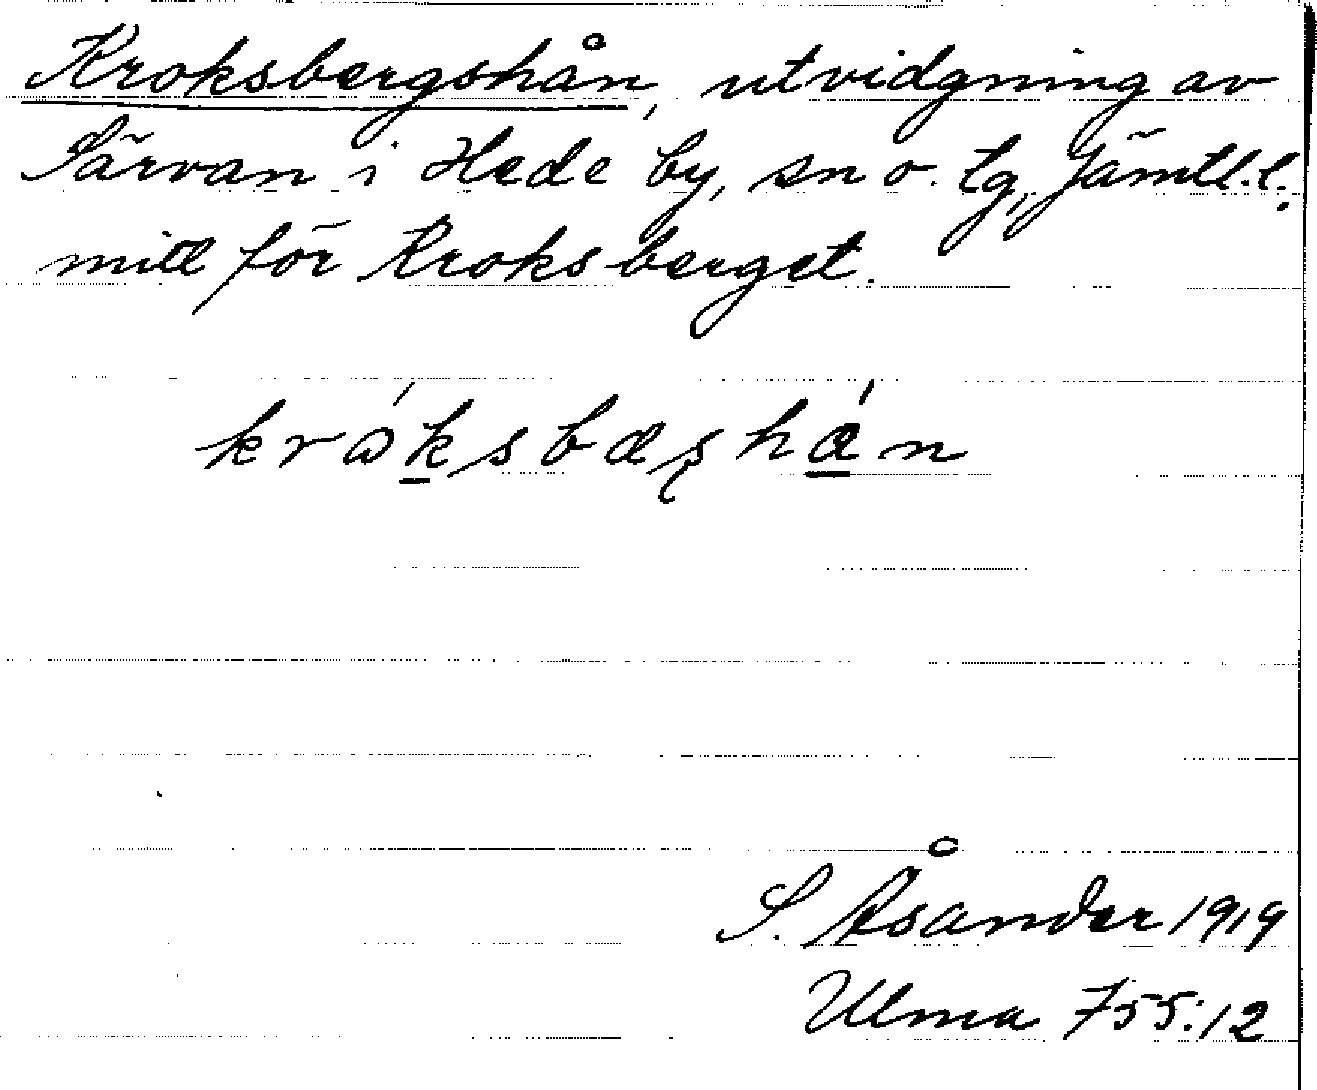 Kroksbergshån, utvidgning av
Särvan i Hede by, sn o. tg, Jämtl. l.
mitt för Kroksberget.
krɷ́k̲sbæʂhǽ̲n
S. Åsander 1919
Ulma 755:12